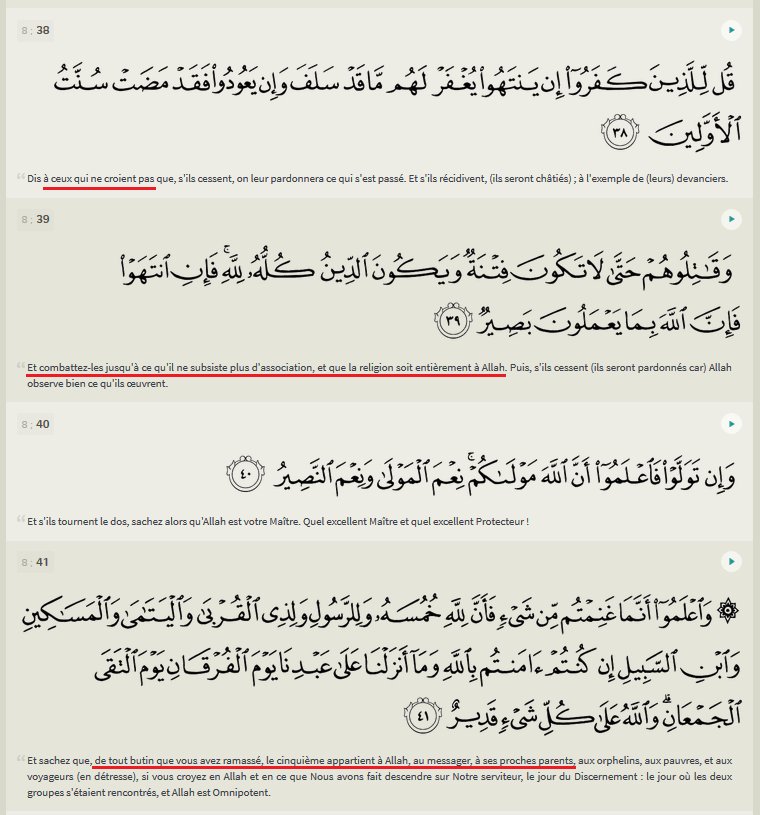 8 : 38
قُل لِّلَّذِينَ كَفَرُوٓا۟ إِن يَنتَهُوا۟ يُغْفَرْ لَهُم مَّا قَدْ سَلَفَ وَإِن يَعُودُوا۟ فَقَدْ مَضَتْ سُنَّتُ
ٱلْأَوَّلِينَ ٣٨
Dis à ceux qui ne croient pas que, s'ils cessent, on leur pardonnera ce qui s'est passé. Et s'ils récidivent, (ils seront châtiés) ; à l'exemple de (leurs) devanciers.
8 : 39
وَقَـٰتِلُوهُمْ حَتَّىٰ لَا تَكُونَ فِتْنَةٌ وَيَكُونَ ٱلدِّينُ كُلُّهُۥ لِلَّهِ ۚ فَإِنِ ٱنتَهَوْا۟
فَإِنَّ ٱللَّهَ بِمَا يَعْمَلُونَ بَصِيرٌ ٣٩
Et combattez-les jusqu'à ce qu'il ne subsiste plus d'association, et que la religion soit entièrement à Allah. Puis, s'ils cessent (ils seront pardonnés car) Allah
observe bien ce qu'ils œuvrent.
8 : 40
وَإِن تَوَلَّوْا۟ فَٱعْلَمُوٓا۟ أَنَّ ٱللَّهَ مَوْلَىٰكُمْ ۚ نِعْمَ ٱلْمَوْلَىٰ وَنِعْمَ ٱلنَّصِيرُ ٤٠
Et s'ils tournent le dos, sachez alors qu'Allah est votre Maître. Quel excellent Maître et quel excellent Protecteur !
8 : 41
۞ وَٱعْلَمُوٓا۟ أَنَّمَا غَنِمْتُم مِّن شَىْءٍ فَأَنَّ لِلَّهِ خُمُسَهُۥ وَلِلرَّسُولِ وَلِذِى ٱلْقُرْبَىٰ وَٱلْيَتَـٰمَىٰ وَٱلْمَسَـٰكِينِ
وَٱبْنِ ٱلسَّبِيلِ إِن كُنتُمْ ءَامَنتُم بِٱللَّهِ وَمَآ أَنزَلْنَا عَلَىٰ عَبْدِنَا يَوْمَ ٱلْفُرْقَانِ يَوْمَ ٱلْتَقَى
ٱلْجَمْعَانِ ۗ وَٱللَّهُ عَلَىٰ كُلِّ شَىْءٍ قَدِيرٌ ٤١
Et sachez que, de tout butin que vous avez ramassé, le cinquième appartient à Allah, au messager, à ses proches parents, aux orphelins, aux pauvres, et aux
voyageurs (en détresse), si vous croyez en Allah et en ce que Nous avons fait descendre sur Notre serviteur, le jour du Discernement : le jour où les deux
groupes s'étaient rencontrés, et Allah est Omnipotent.